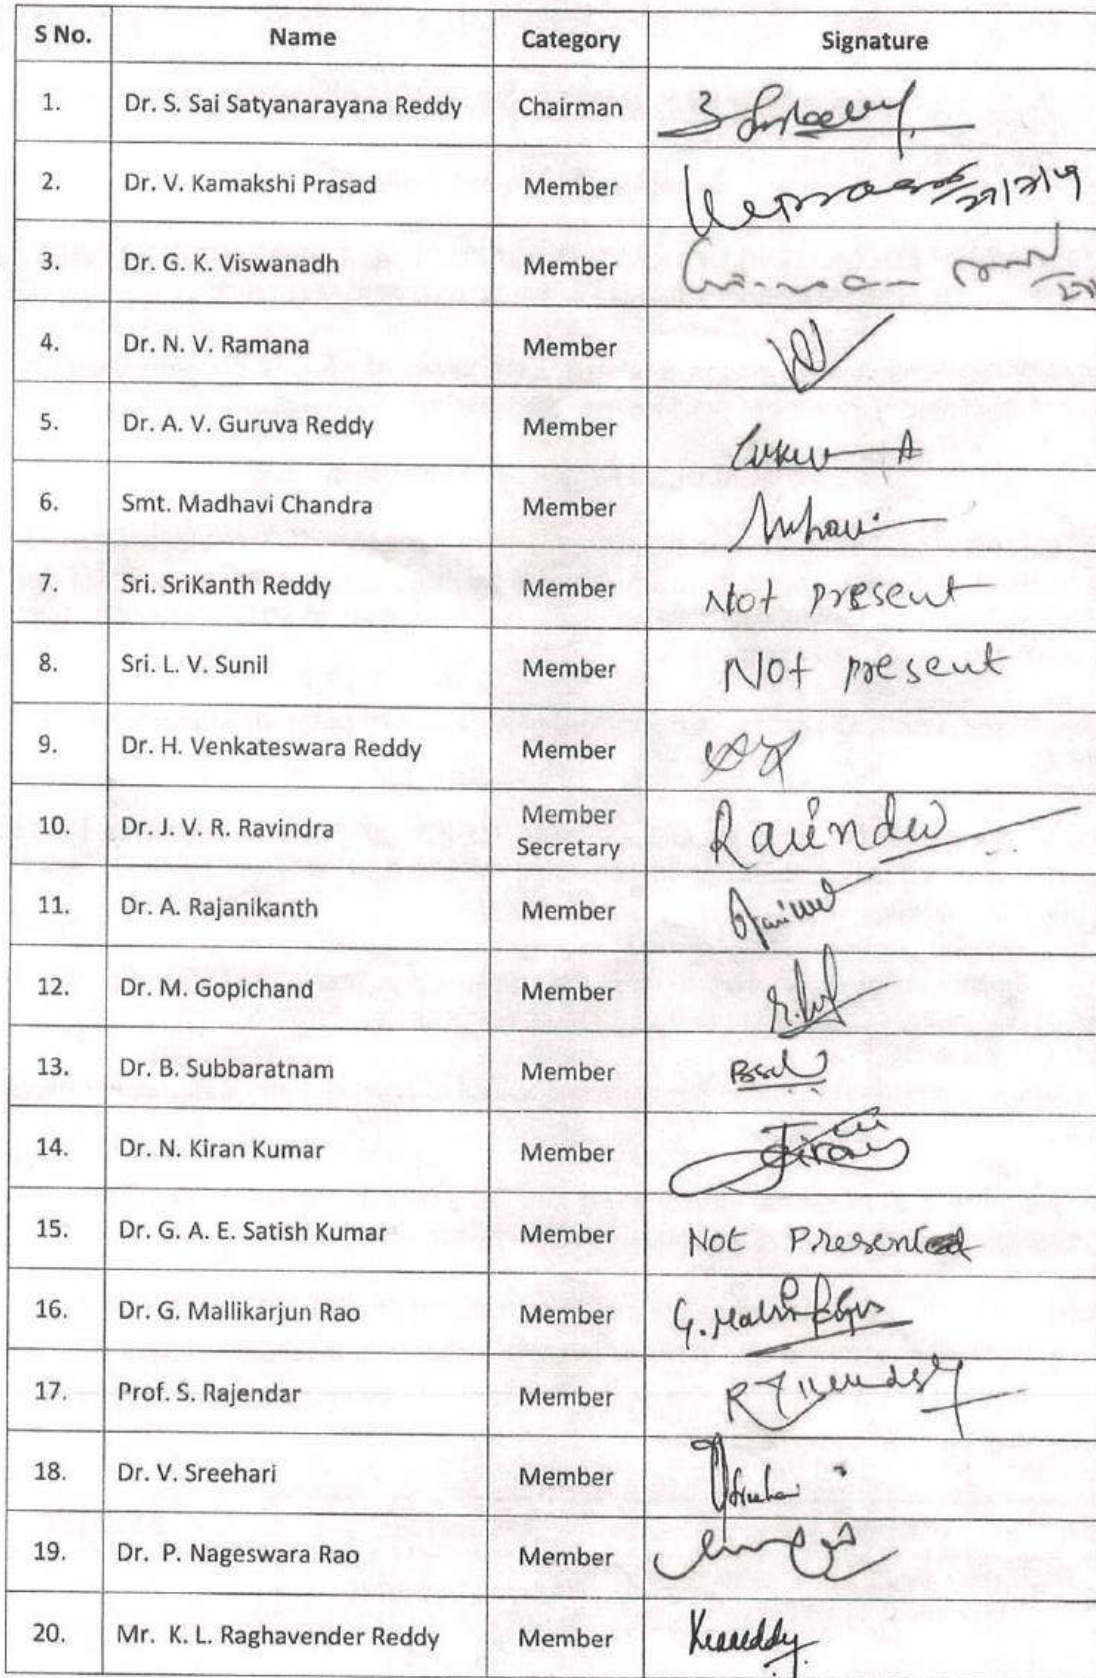 S No. Name Category Signature
1. Dr. S. Sai Satyanarayana Reddy Chairman
2. Dr. V. Kamakshi Prasad Member
3. Dr. G. K. Viswanadh Member
4. Dr. N. V. Ramana Member
5. Dr. A. V. Guruva Reddy Member
6. Smt. Madhavi Chandra Member
7. Sri. SriKanth Reddy Member Not present
8. Sri. L. V. Sunil Member Not present
9. Dr. H. Venkateswara Reddy Member
10. Dr. J. V. R. Ravindra Member
Secretary
11. Dr. A. Rajanikanth Member
12. Dr. M. Gopichand Member
13. Dr. B. Subbaratnam Member
14. Dr. N. Kiran Kumar Member
15. Dr. G. A. E. Satish Kumar Member Not Present
16. Dr. G. Mallikarjun Rao Member
17. Prof. S. Rajendar Member
18. Dr. V. Sreehari Member
19. Dr. P. Nageswara Rao Member
20. Mr. K. L. Raghavender Reddy Member